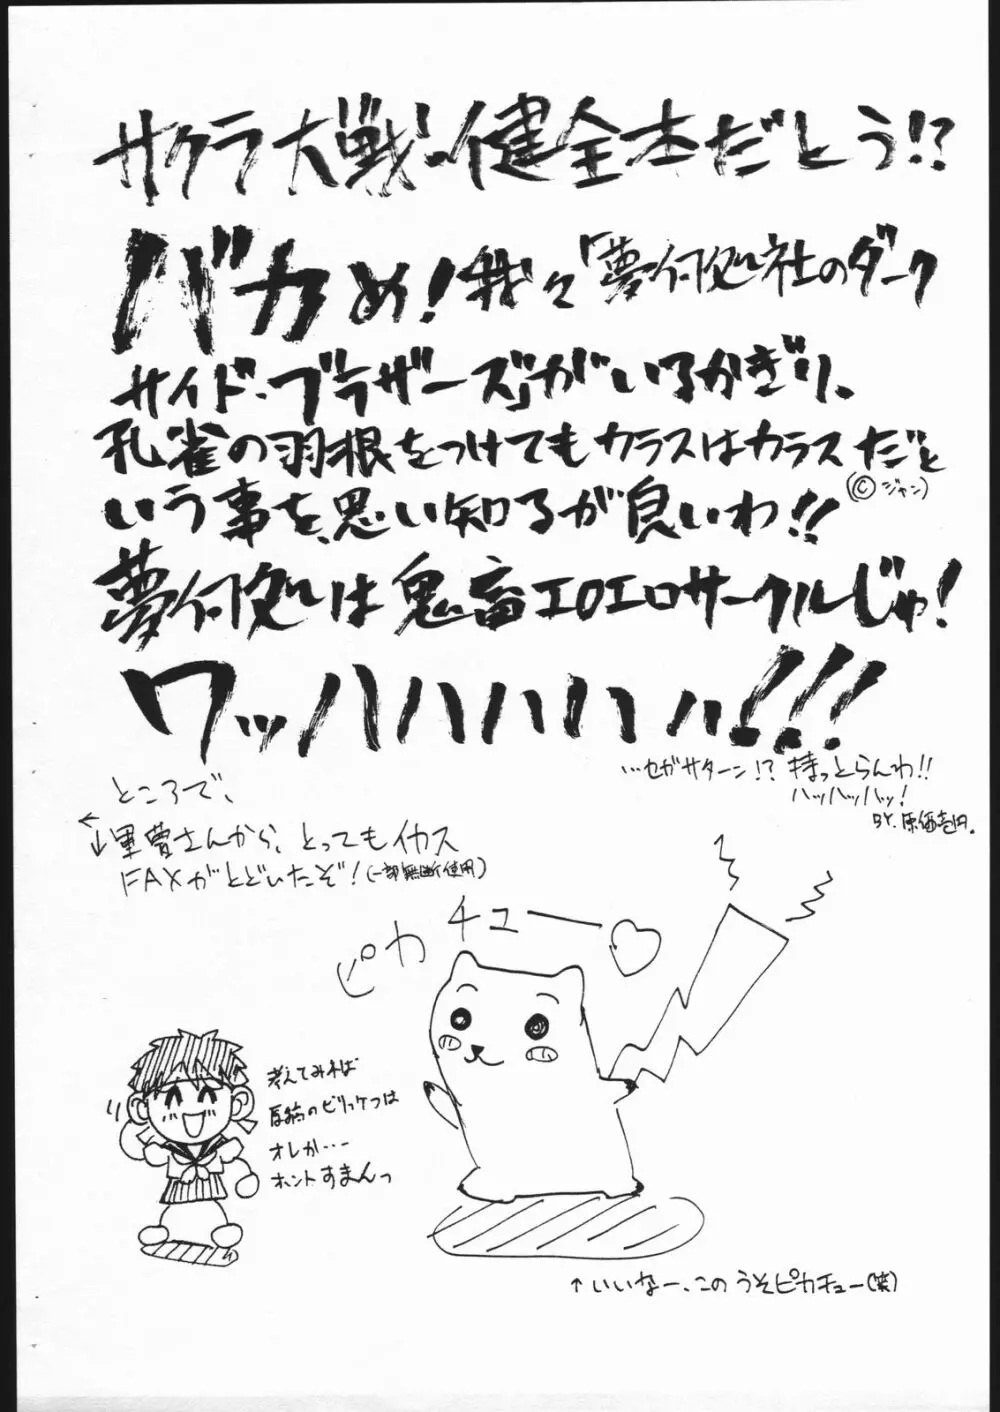 サクラ大戦の健全本だとう!?
バカめ!我々「夢何処社のダーク
サイド・ブラザーズ」がいるかぎり、
孔雀の羽根をつけてもカラスはカラスだと
(©ジャン)
いう事を、思い知るが良いわ!!
夢何処は鬼畜エロエロサークルじゃ!
ワッハハハハハハ!!!
…セガサターン!?持っとらんわ!!
ハッハッハッ!
BY.原価壱円。
ところで、
さんから、とってもイカス
FAXがとどいたぞ!(一部無断使用)
ピカチュー♡
考えてみれば
原稿のビリッケツは
オレか…
ホントすまんっ
↑いいなー、このうそピカチュー(笑)